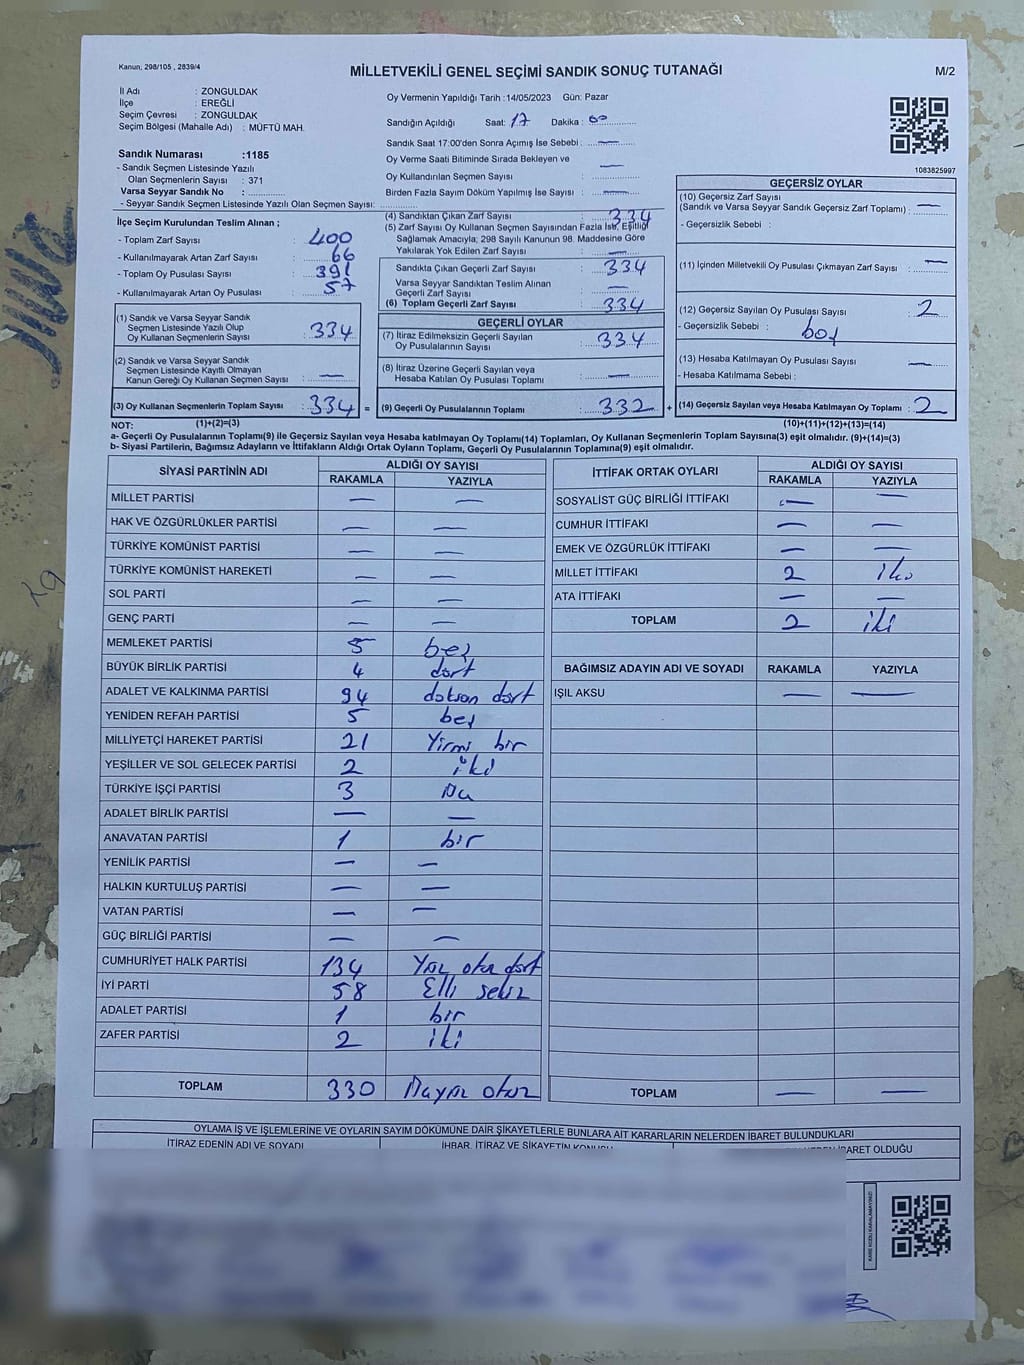 Kanun; 298/105 , 2839/4
MİLLETVEKİLİ GENEL SEÇİMİ SANDIK SONUÇ TUTANAĞI
M/2
İl Adı : ZONGULDAK
İlçe : EREĞLİ
Seçim Çevresi : ZONGULDAK
Seçim Bölgesi (Mahalle Adı) : MÜFTÜ MAH.
Sandık Numarası :1185
- Sandık Seçmen Listesinde Yazılı
Olan Seçmenlerin Sayısı : 371
Varsa Seyyar Sandık No :
- Seyyar Sandık Seçmen Listesinde Yazılı Olan Seçmen Sayısı:
Oy Vermenin Yapıldığı Tarih :14/05/2023 Gün: Pazar
Sandığın Açıldığı Saat: 17 Dakika : 00
Sandık Saat 17:00'den Sonra Açımış İse Sebebi : —
Oy Verme Saati Bitiminde Sırada Bekleyen ve
Oy Kullandırılan Seçmen Sayısı —
Birden Fazla Sayım Döküm Yapılmış İse Sayısı : —
1083825997
İlçe Seçim Kurulundan Teslim Alınan ;
- Toplam Zarf Sayısı : 400
- Kullanılmayarak Artan Zarf Sayısı : 66
- Toplam Oy Pusulası Sayısı : 391
- Kullanılmayarak Artan Oy Pusulası : 57
(1) Sandık ve Varsa Seyyar Sandık
Seçmen Listesinde Yazılı Olup
Oy Kullanan Seçmen Sayısı : 334
(2) Sandık ve Varsa Seyyar Sandık
Seçmen Listesinde Kayıtlı Olmayan
Kanun Gereği Oy Kullanan Seçmen Sayısı : —
(3) Oy Kullanan Seçmenlerin Toplam Sayısı : 334 =
(1)+(2)=(3)
(4) Sandıktan Çıkan Zarf Sayısı : 334
(5) Zarf Sayısı Oy Kullanan Seçmen Sayısından Fazla İse, Eşitliği
Sağlamak Amacıyla; 298 Sayılı Kanunun 98. Maddesine Göre
Yakılarak Yok Edilen Zarf Sayısı : —
Sandıkta Çıkan Geçerli Zarf Sayısı : 334
Varsa Seyyar Sandıktan Teslim Alınan
Geçerli Zarf Sayısı : —
(6) Toplam Geçerli Zarf Sayısı : 334
GEÇERLİ OYLAR
(7) İtiraz Edilmeksizin Geçerli Sayılan
Oy Pusulalarının Sayısı : 334
(8) İtiraz Üzerine Geçerli Sayılan veya
Hesaba Katılan Oy Pusulası Toplamı : —
(9) Geçerli Oy Pusulalarının Toplamı : 332 +
GEÇERSİZ OYLAR
(10) Geçersiz Zarf Sayısı
(Sandık ve Varsa Seyyar Sandık Geçersiz Zarf Toplamı) : —
- Geçersizlik Sebebi :
(11) İçinden Milletvekili Oy Pusulası Çıkmayan Zarf Sayısı : —
(12) Geçersiz Sayılan Oy Pusulası Sayısı : 2
- Geçersizlik Sebebi : boş
(13) Hesaba Katılmayan Oy Pusulası Sayısı : —
- Hesaba Katılmama Sebebi :
(14) Geçersiz Sayılan veya Hesaba Katılmayan Oy Toplamı : 2
(10)+(11)+(12)+(13)=(14)
NOT:
a- Geçerli Oy Pusulalarının Toplamı(9) ile Geçersiz Sayılan veya Hesaba katılmayan Oy Toplamı(14) Toplamları, Oy Kullanan Seçmenlerin Toplam Sayısına(3) eşit olmalıdır. (9)+(14)=(3)
b- Siyasi Partilerin, Bağımsız Adayların ve İttifakların Aldığı Ortak Oyların Toplamı, Geçerli Oy Pusulalarının Toplamına(9) eşit olmalıdır.
SİYASİ PARTİNİN ADI ALDIĞI OY SAYISI
RAKAMLA YAZIYLA
MİLLET PARTİSİ — —
HAK VE ÖZGÜRLÜKLER PARTİSİ — —
TÜRKİYE KOMÜNİST PARTİSİ — —
TÜRKİYE KOMÜNİST HAREKETİ — —
SOL PARTİ — —
GENÇ PARTİ — —
MEMLEKET PARTİSİ 5 beş
BÜYÜK BİRLİK PARTİSİ 4 dört
ADALET VE KALKINMA PARTİSİ 94 doksan dört
YENİDEN REFAH PARTİSİ 5 beş
MİLLİYETÇİ HAREKET PARTİSİ 21 Yirmi bir
YEŞİLLER VE SOL GELECEK PARTİSİ 2 iki
TÜRKİYE İŞÇİ PARTİSİ 3 Üç
ADALET BİRLİK PARTİSİ — —
ANAVATAN PARTİSİ 1 bir
YENİLİK PARTİSİ — —
HALKIN KURTULUŞ PARTİSİ — —
VATAN PARTİSİ — —
GÜÇ BİRLİĞİ PARTİSİ — —
CUMHURİYET HALK PARTİSİ 134 Yüz otuz dört
İYİ PARTİ 58 Elli sekiz
ADALET PARTİSİ 1 bir
ZAFER PARTİSİ 2 iki
TOPLAM 330 Üçyüz otuz
İTTİFAK ORTAK OYLARI ALDIĞI OY SAYISI
RAKAMLA YAZIYLA
SOSYALİST GÜÇ BİRLİĞİ İTTİFAKI — —
CUMHUR İTTİFAKI — —
EMEK VE ÖZGÜRLÜK İTTİFAKI — —
MİLLET İTTİFAKI 2 iki
ATA İTTİFAKI — —
TOPLAM 2 iki
BAĞIMSIZ ADAYIN ADI VE SOYADI RAKAMLA YAZIYLA
IŞIL AKSU — —
TOPLAM — —
OYLAMA İŞ VE İŞLEMLERİNE VE OYLARIN SAYIM DÖKÜMÜNE DAİR ŞİKAYETLERLE BUNLARA AİT KARARLARIN NELERDEN İBARET BULUNDUKLARI
İTİRAZ EDENİN ADI VE SOYADI İHBAR, İTİRAZ VE ŞİKAYETİN KONUSU İBARET OLDUĞU